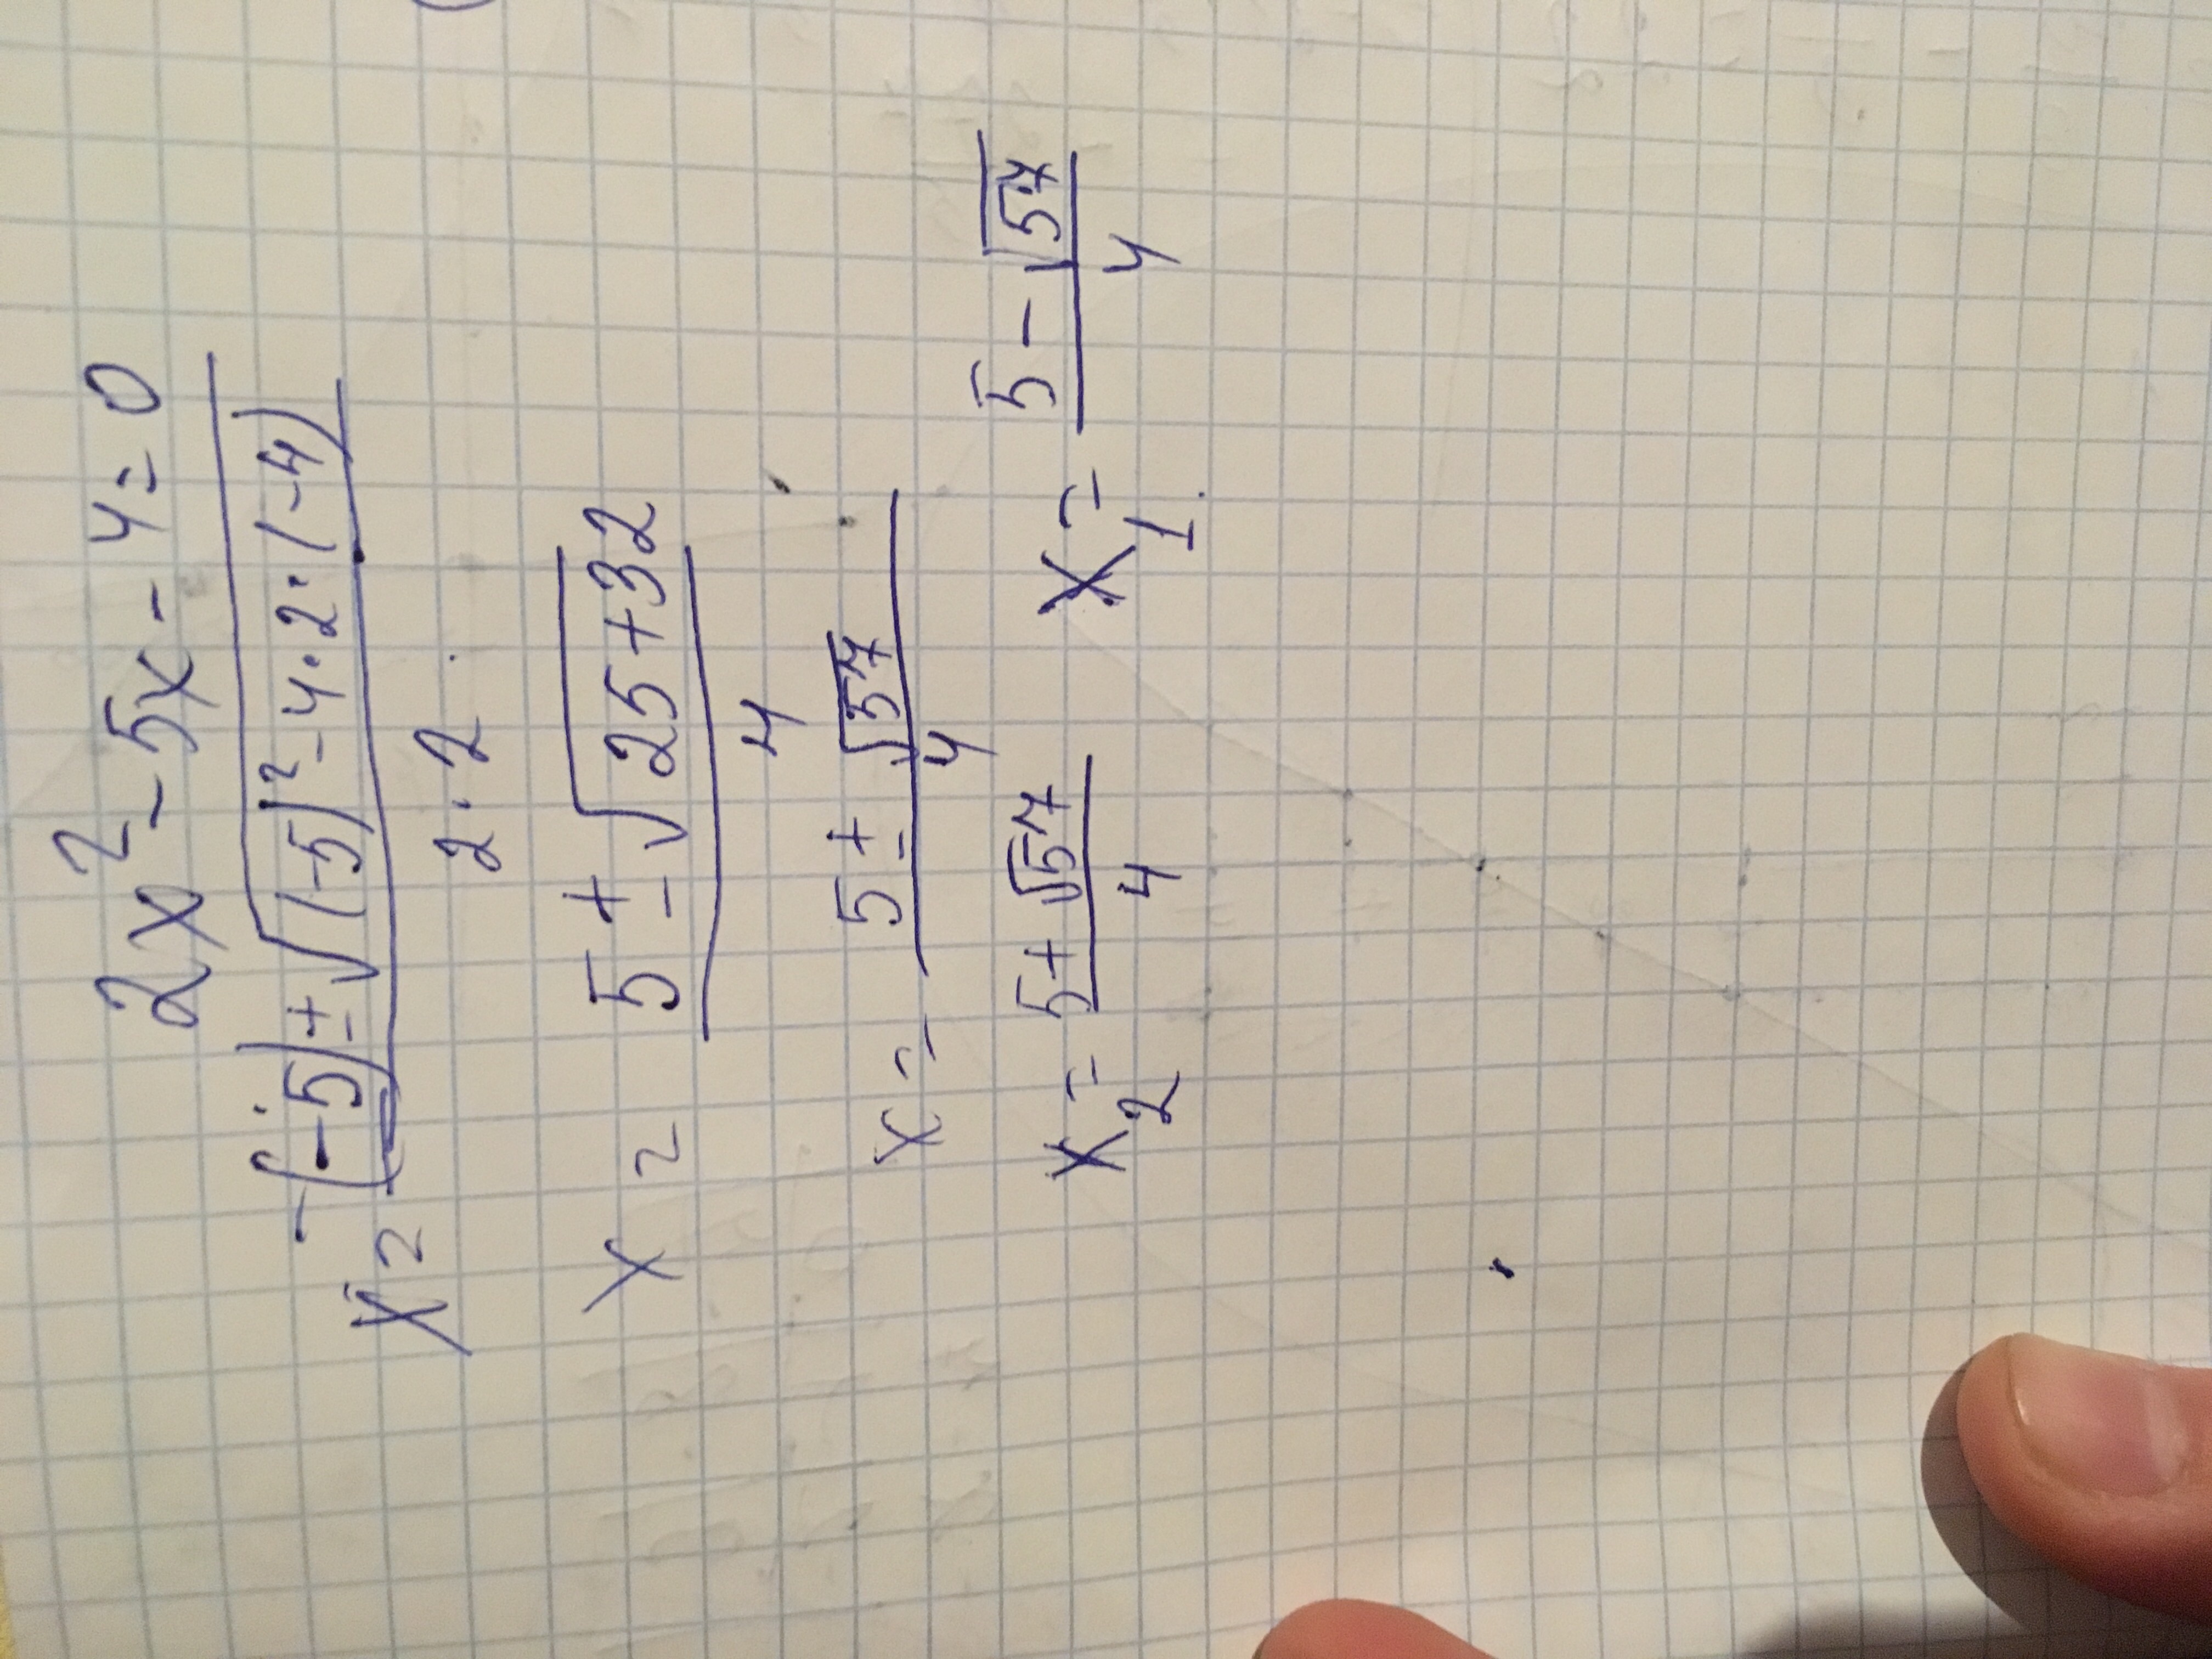 2x² - 5x - 4 = 0
x = (-(-5) ± √((-5)² - 4 · 2 · (-4))) / (2 · 2)
x = (5 ± √(25 + 32)) / 4
x = (5 ± √57) / 4
x₂ = (5 + √57) / 4 x₁ = (5 - √57) / 4